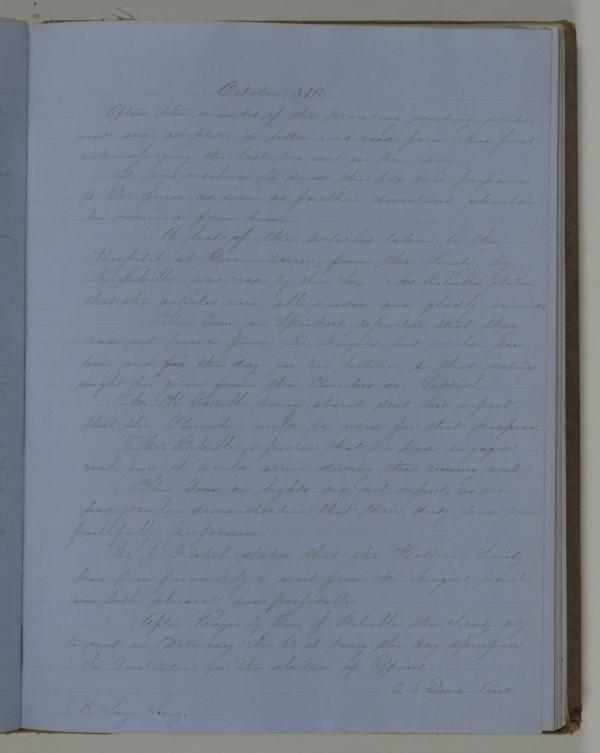 October 31st
After the minutes of the preceding meeting were
read and adopted, a letter was read from Mrs. Jones
acknowledging the last box sent in her care.
It was resolved to send the box now prepared
to Dr. Jones as soon as further directions should
be received from him.
A list of the articles taken to the
Hospital at Germantown, from the Society by
Mr. Belville, was read by the Sec. Mr. Belville stated
that the articles were all needed and gladly received
The Com. on Speakers, reported that they
had not heard from Mr. but would see
him and fix the day for his lecture, so that notice
might be given from the Churches on Sabbath.
Mr. Ch. being absent sent his report
that the Church could be used for that purpose.
Mr. Belville reported that he had engaged
coal, and it would arrive during the coming week.
The Com. on lights did not report, as we
had ocular demonstration that their duty had been
faithfully performed.
Mr. J. Mitchel stated that the Society
had been favored by a visit from Mr. which
was both pleasant and profitable.
After Prayer by Rev. J. Belville the Society adj.
to meet on Wednesday Jan 6th it being the day specified
in the Constitution for the election of Officers.
E. I. Davis Prest
Secy.